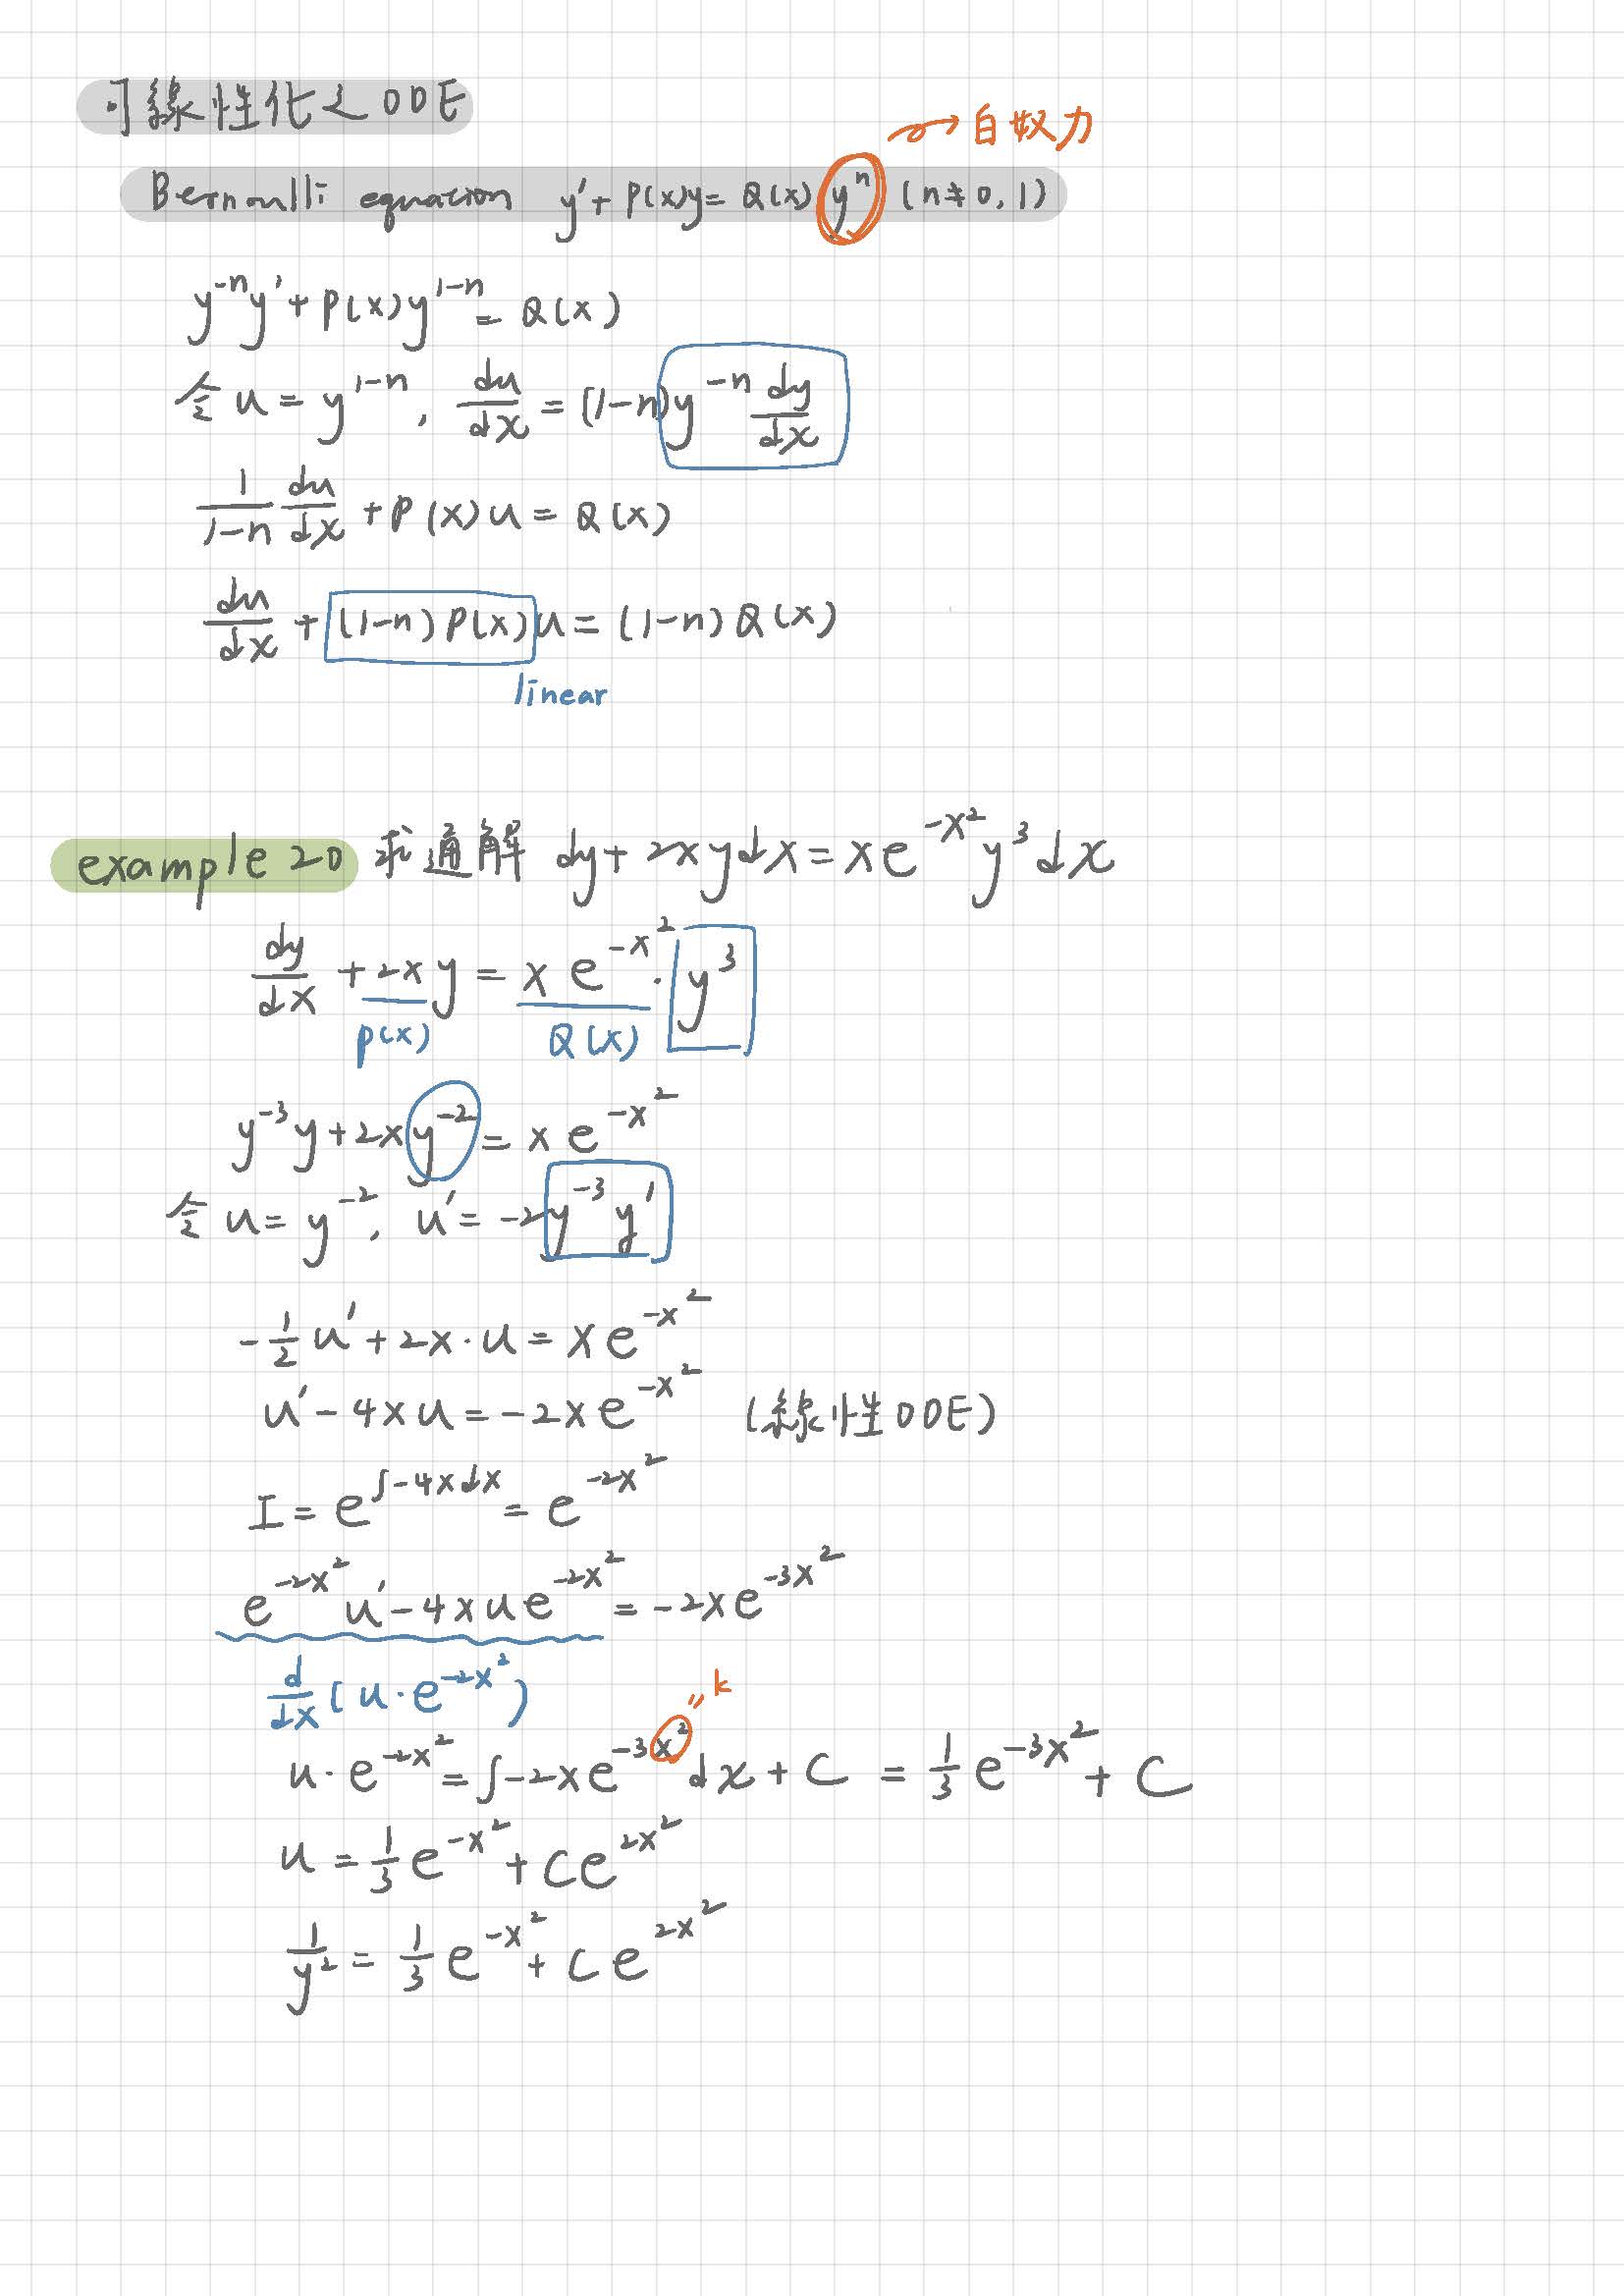 可線性化之ODE
→自努力
Bernoulli equation y' + P(x)y = Q(x) yⁿ (n≠0,1)
y⁻ⁿy' + P(x)y¹⁻ⁿ = Q(x)
令 u = y¹⁻ⁿ, du/dx = (1-n)y⁻ⁿ dy/dx
1/(1-n) du/dx + P(x)u = Q(x)
du/dx + (1-n)P(x)u = (1-n)Q(x)
linear
example 20 求通解 dy + 2xydx = xe^(-x²)y³dx
dy/dx + 2xy = xe^(-x²)·y³
P(x) Q(x)
y⁻³y + 2xy⁻² = xe^(-x²)
令 u = y⁻², u' = -2y⁻³y'
-1/2 u' + 2x·u = xe^(-x²)
u' - 4xu = -2xe^(-x²) (線性ODE)
I = e^(∫-4xdx) = e^(-2x²)
e^(-2x²)u' - 4xue^(-2x²) = -2xe^(-3x²)
d/dx(u·e^(-2x²))
"k
u·e^(-2x²) = ∫-2xe^(-3x²)dx + C = 1/3 e^(-3x²) + C
u = 1/3 e^(-x²) + Ce^(2x²)
1/y² = 1/3 e^(-x²) + Ce^(2x²)